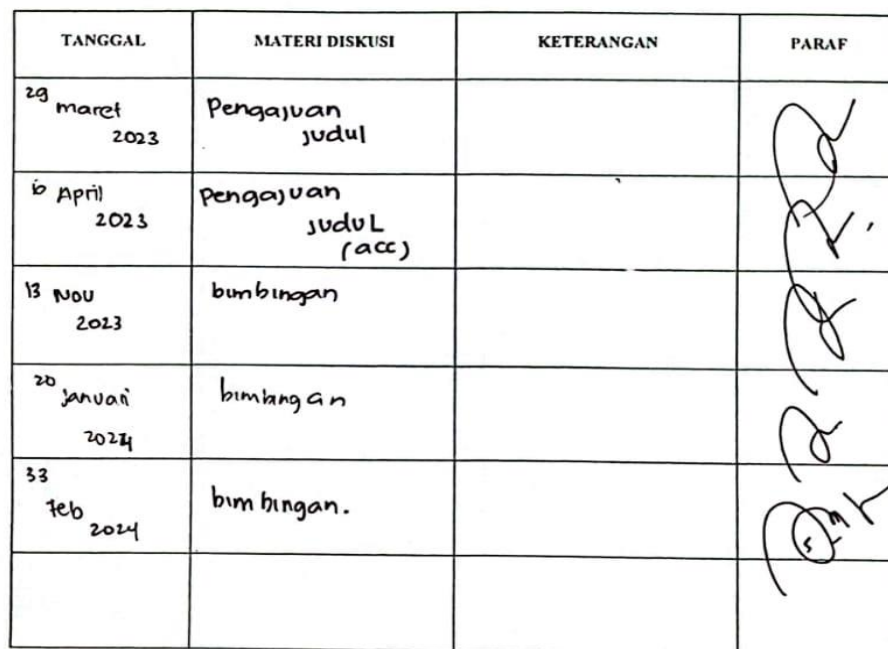 TANGGAL MATERI DISKUSI KETERANGAN PARAF
29 maret 2023 Pengajuan judul
6 April 2023 Pengajuan judul (acc)
13 Nov 2023 bimbingan
20 januari 2024 bimbingan
33 feb 2024 bimbingan.